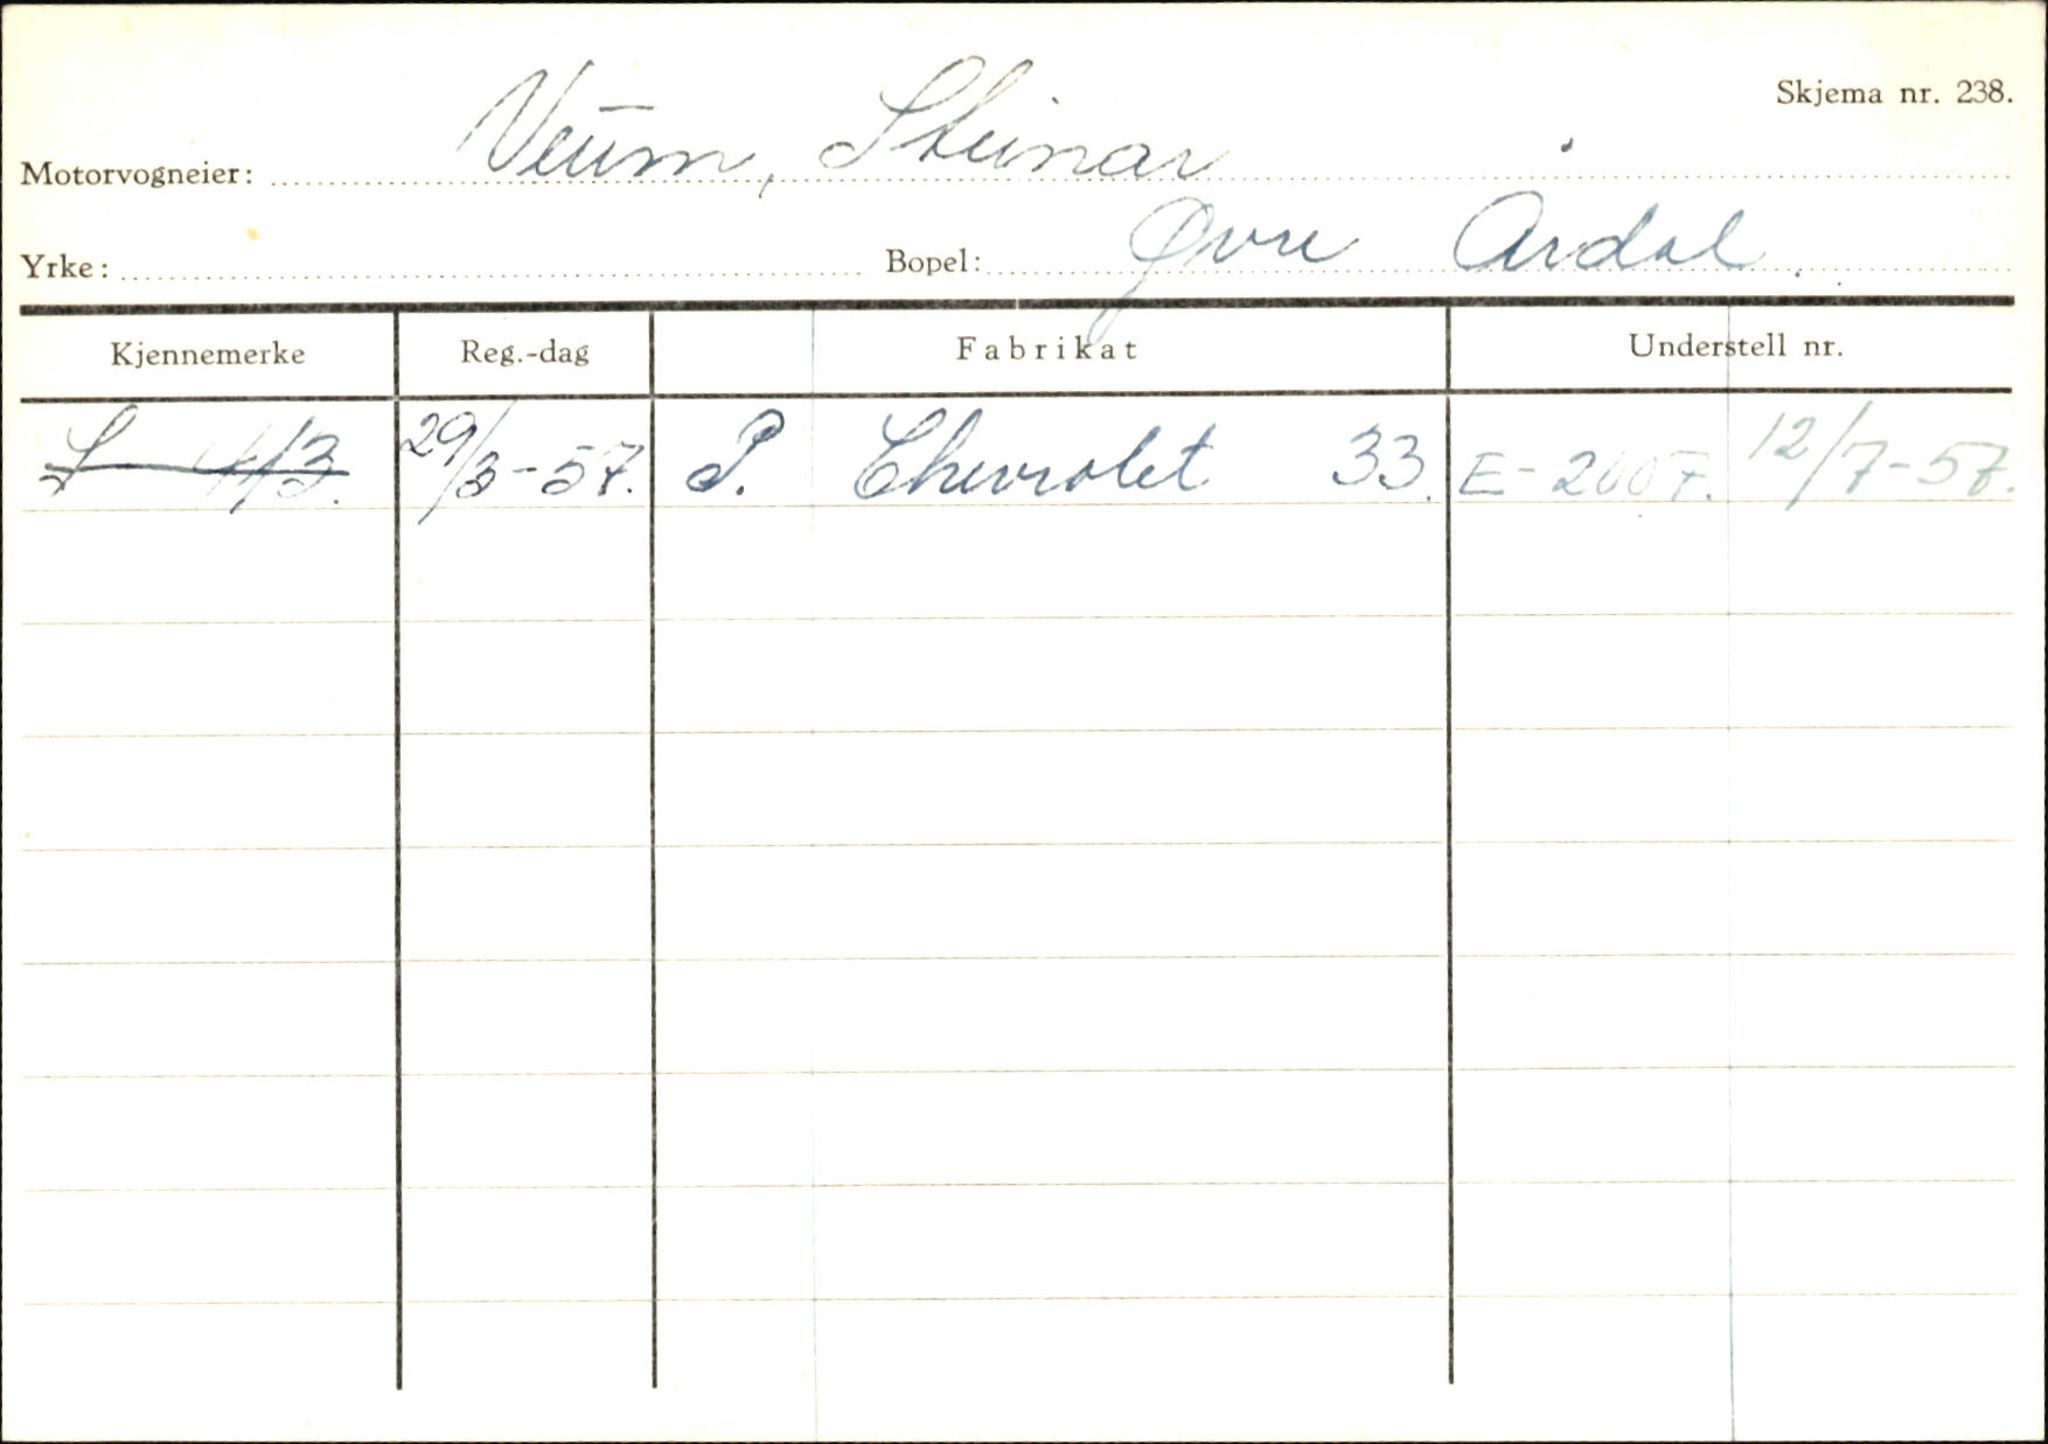 Skjema nr. 238.
Motorvogneier: Veum, Steinar
Yrke: Bopel: Øvre Årdal.
Kjennemerke Reg.-dag Fabrikat Understell nr.
S 413. 29/3-57. P. Chevrolet 33. E-2007. 12/7-57.